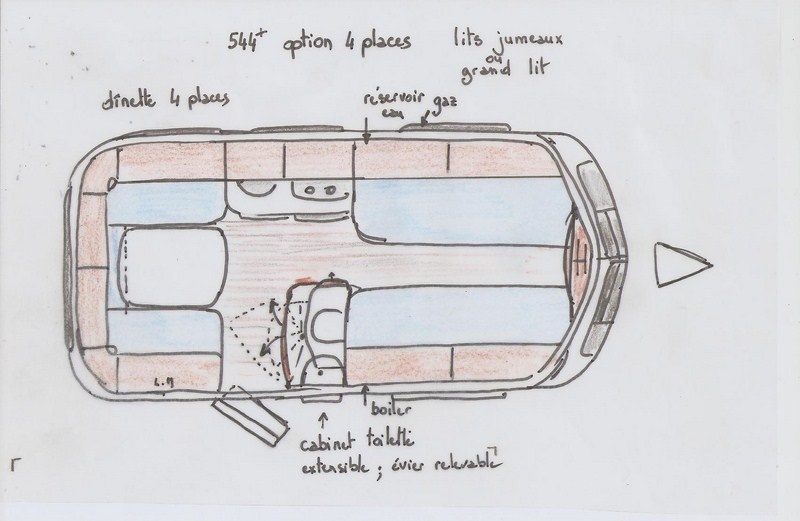 544+ option 4 places lits jumeaux
ou
grand lit
dînette 4 places
réservoir gaz
eau
L.M
boiler
cabinet toilette
extensible ; évier relevable